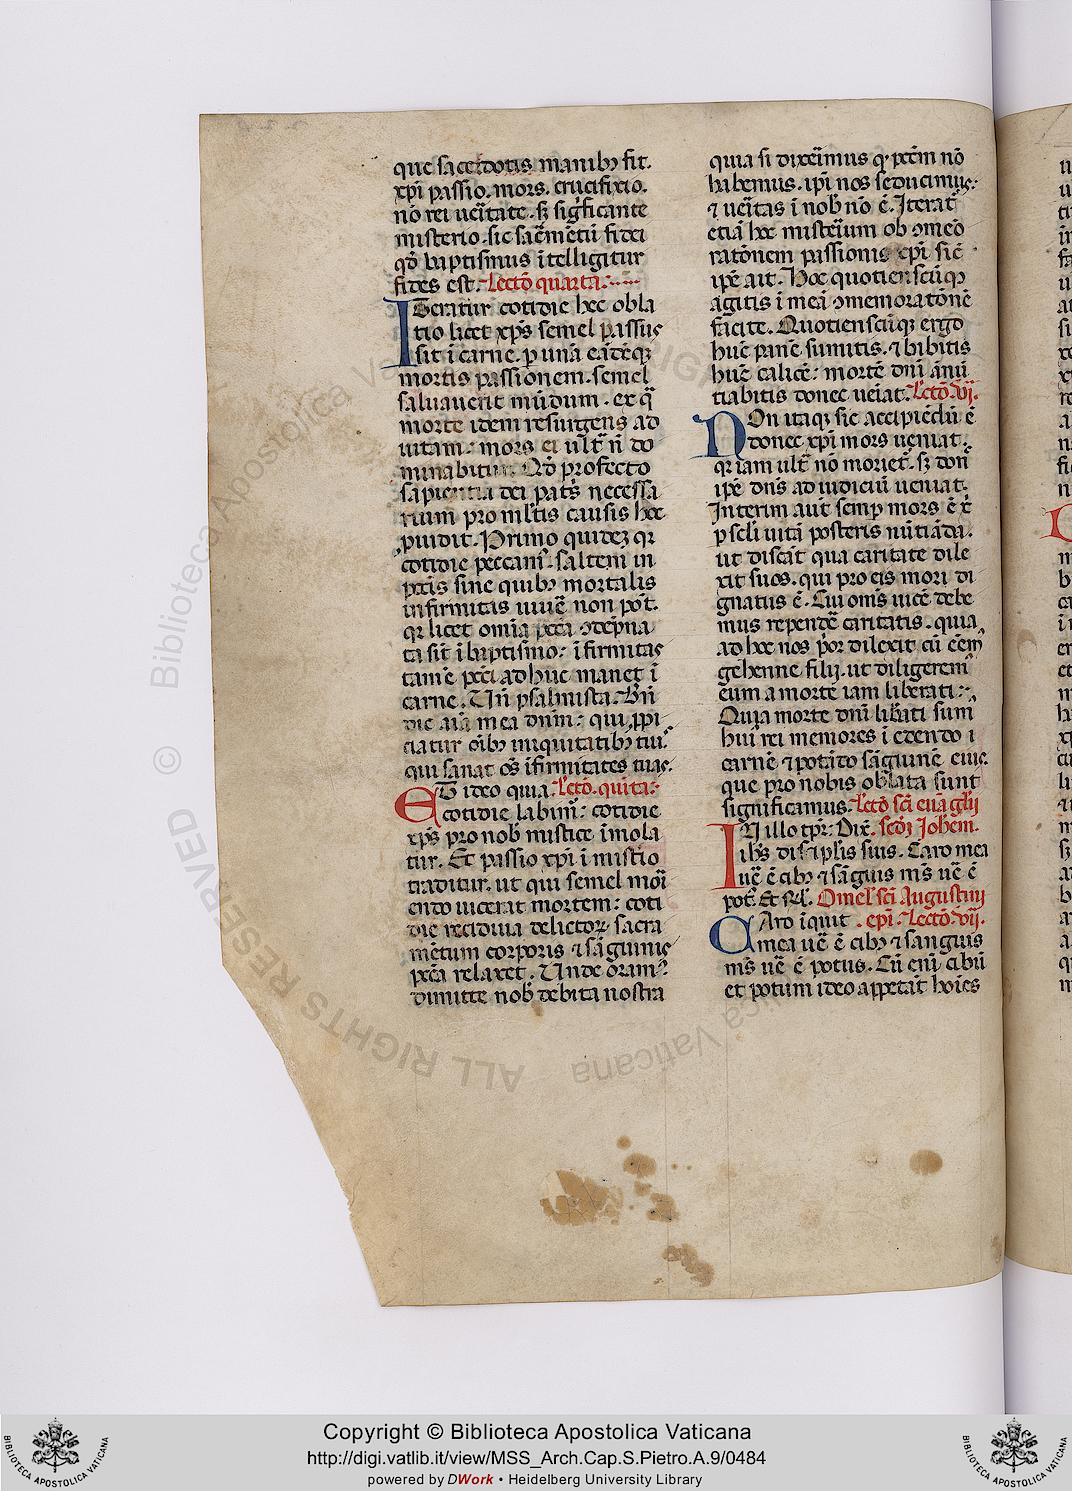 que sacerdotis manibꝫ fit.
xp̄i passio. mors. crucifixio.
nō rei ueritate. sꝫ significante
misterio. sic sacm̄etū fidei
qd̄ baptismus ītelligitur
fides est. Lectō quarta.
Iteratur cotidie hec obla
tio licet xp̄s semel passus
sit ī carne. p unā eādēqꝫ
mortis passionem. semel
saluauerit mūdum. ex q̄
morte idem resurgens ad
uitam: mors ei ult̄ n̄ do
minabitur. Qd̄ profecto
sapientia dei pat̄s necessa
rium pro ml̄tis causis hec
puidit. Primo quideꝫ qꝛ
cotidie peccam̄. saltem in
pctīs sine quibꝫ mortalis
infirmitas uiuē non pōt.
qꝛ licet omīa pctā ↄdēpna
ta sīt ī baptismo: īfirmitas
tam̄ e pcti adhuc manet ī
carne. Un̄ psalmista. Bn̄
dic aīa mea dnm̄: qui ꝓpi
ciatur oībꝫ iniquitatibꝫ tuis
qui sanat oēs īfirmitates tuas.
Et ideo quia. Lectō. quīta.
cotidie labim̄: cotidie
xp̄s pro nob̄ mistice īmola
tur. Et passio xp̄i ī mistīo
traditur. ut qui semel mori
endo uicerat mortem: coti
die recidiua delictoꝝ. sacra
mētum corporis ⁊ sāguinis
pctā relaxet. Unde oram̄:
dimitte nob̄ debita nostra
quia si dixeīmus qꝛ pctm̄ nō
habemus. ip̄i nos seducimus:
⁊ ueritas ī nob̄ nō ē. Iterat̄
etiā hoc misterium ob ↄmeō
ratōnem passionis xp̄i sic̄
ip̄e ait. Hoc quotienscūqꝫ
agitis ī meā ↄmemoratōnē
facite. Quotienscūqꝫ ergo
hūc panē sumitis. ⁊ bibitis
hūc calicē: mortē dn̄i ānū
tiabitis donec ueīat. Lectō. vi.
Non itaqꝫ sic accipiēdū ē
donec xp̄i mors ueniat.
qꝛ iam ult̄ nō moriet̄. sꝫ don̄
ip̄e dn̄s ad iudiciū ueniat.
Interim aut̄ semp mors ē x̄
p scl̄i uitā posteris nūtiāda.
ut discāt qua caritate dile
xit suos. qui pro eis mori di
gnatus ē. Cui om̄s uicē debe
mus rependē caritatis. quia
ad hec nos p̄or dilexit cū eēm̄
gehenne filij. ut diligerem̄
eum a morte iam liberati:
Quia morte dn̄i lib̄ati sum̄
hui rei memores ī edendo ⁊
carnē ⁊ potādo sāguinē eius
que pro nobis oblata sunt
significamus. Lectō sc̄i euāglij
In illo tp̄r: Dix̄. scd̄ꝫ Johem̄.
ih̄s discipl̄is suis. Caro mea
uē ē cibꝫ ⁊ sāguis m̄s uē ē
pot̄. Et rel̄. Omel̄ sc̄i Augustini
Caro īquit. ep̄i. Lectō. vii.
mea uē ē cibꝫ ⁊ sanguis
m̄s uē ē potus. Cū enī cibū
et potum ideo appetāt hoīes
© Biblioteca Apostolica Vaticana
ALL RIGHTS RESERVED
Copyright © Biblioteca Apostolica Vaticana
http://digi.vatlib.it/view/MSS_Arch.Cap.S.Pietro.A.9/0484
powered by DWork • Heidelberg University Library
BIBLIOTECA APOSTOLICA VATICANA
BIBLIOTECA APOSTOLICA VATICANA